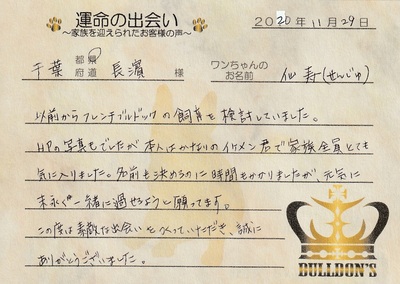 運命の出会い
～家族を迎えられたお客様の声～
2020年11月29日
千葉 都県府道 長濱 様
ワンちゃんのお名前 仙寿(せんじゅ)
以前からフレンチブルドックの飼育を検討していました。
HPの写真もでしたが本人はかなりのイケメン君で家族全員とても
気に入りました。名前も決めるのに時間もかかりましたが、元気に
末永く一緒に過せるようと願ってます。
この度は素敵な出会いをつくっていただき、誠に
ありがとうございました。
BULLDON'S